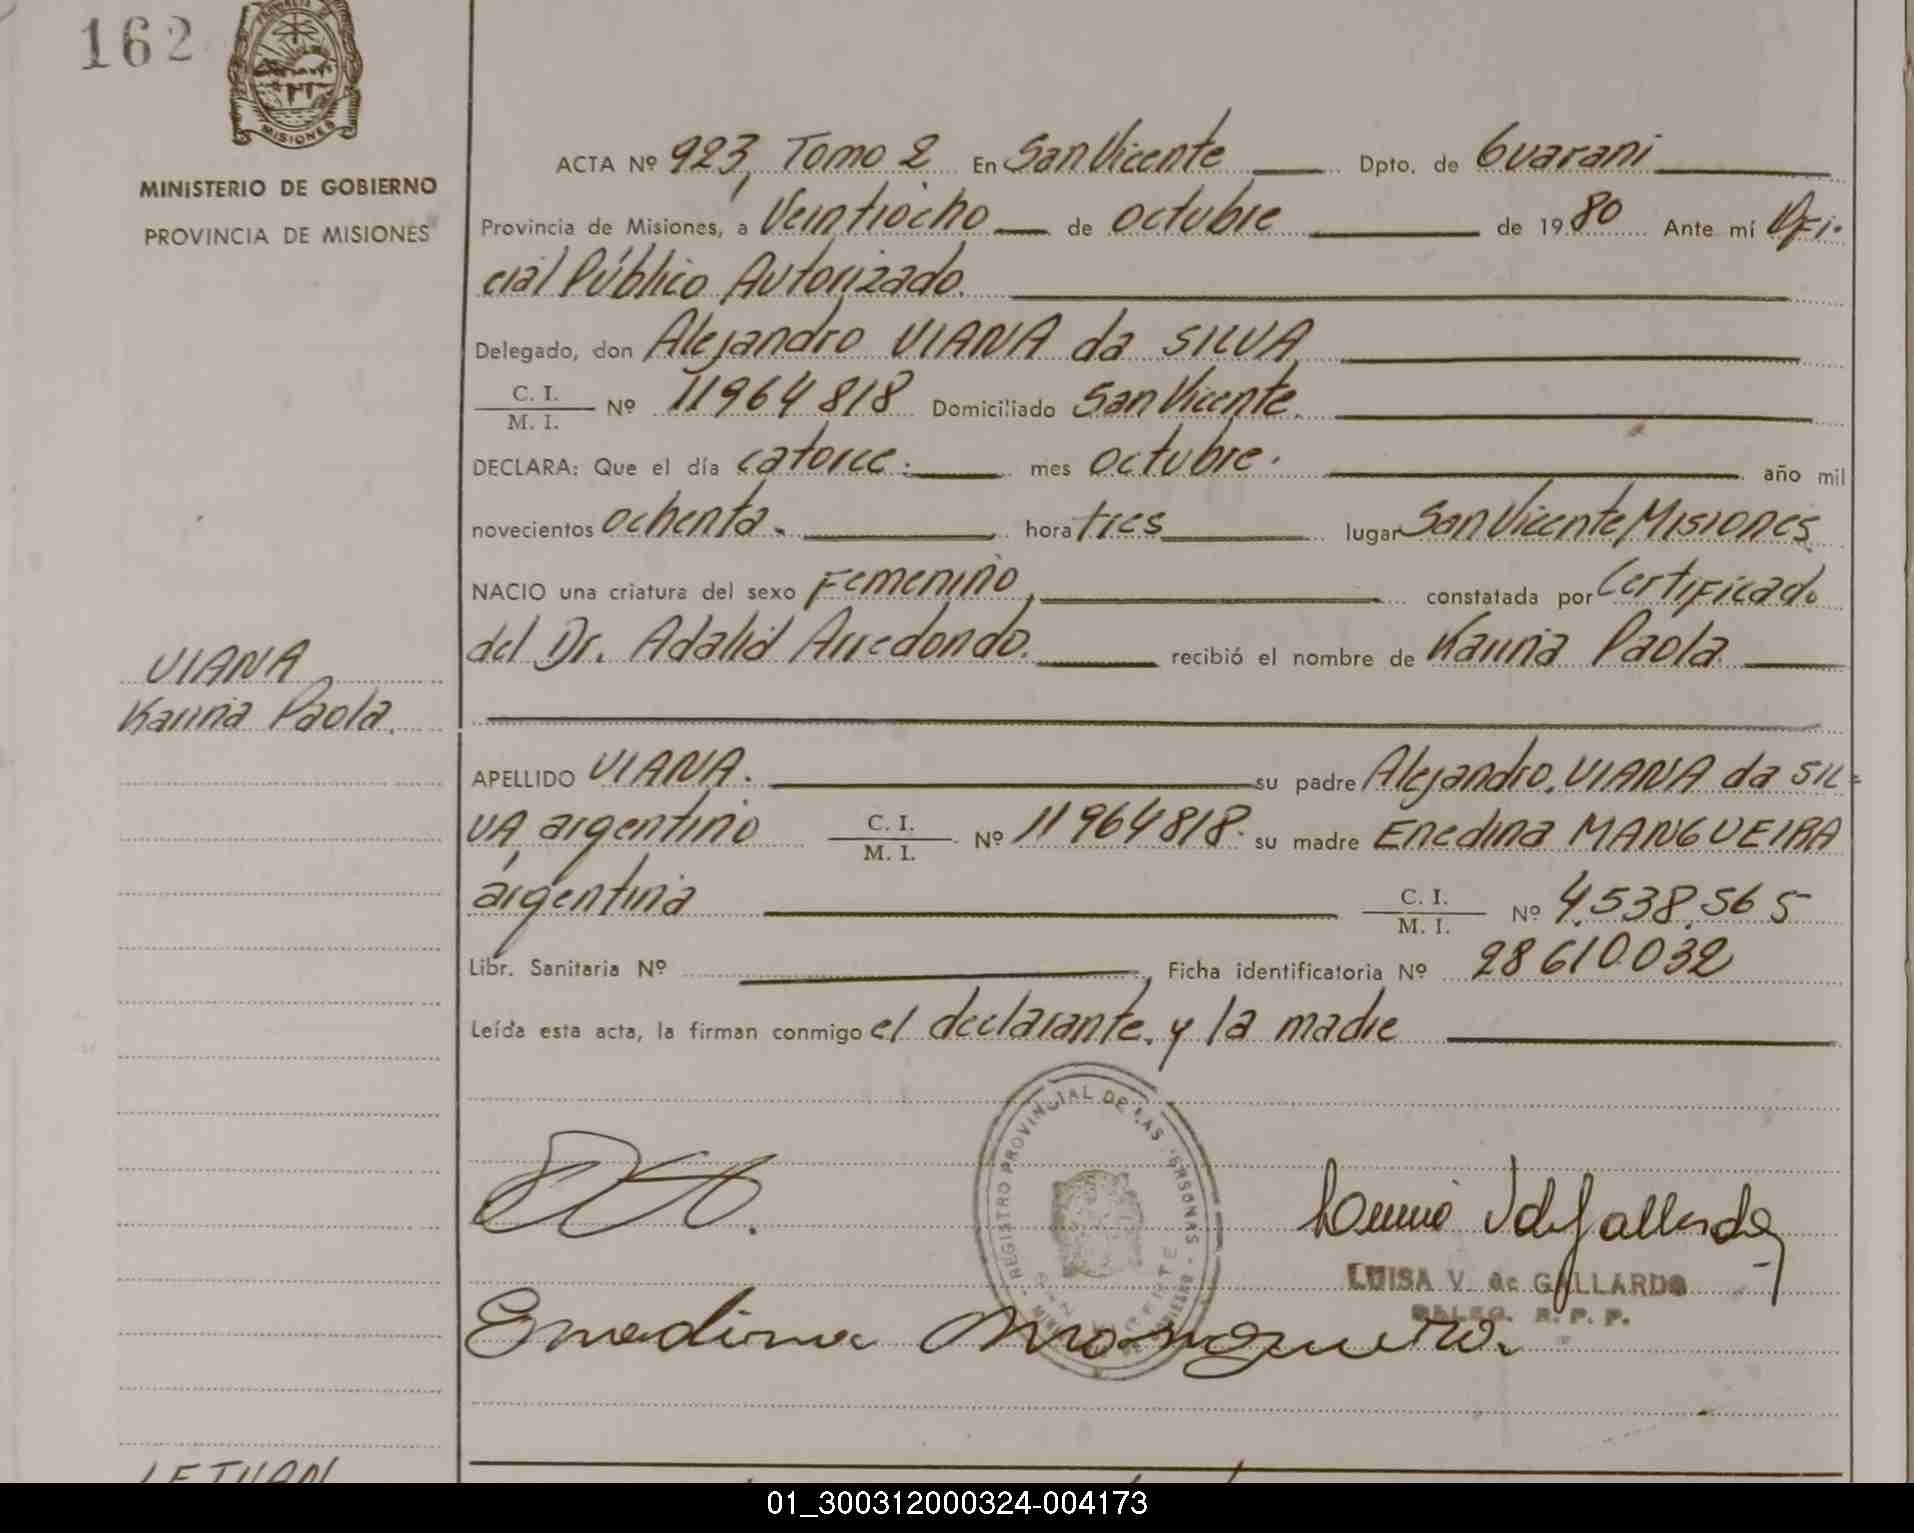 162
PROVINCIA DE
MISIONES
MINISTERIO DE GOBIERNO
PROVINCIA DE MISIONES
ACTA Nº 923, Tomo 2 En San Vicente Dpto. de Guarani
Provincia de Misiones, a Veintiocho de octubre de 1980 Ante mí Ofi-
cial Público Autorizado.
Delegado, don Alejandro VIANA da SILVA
C. I.
M. I. Nº 11964818 Domiciliado San Vicente.
DECLARA: Que el día catorce. mes octubre. año mil
novecientos ochenta. hora tres lugar San Vicente Misiones
NACIO una criatura del sexo Femenino, constatada por Certificado
del Dr. Adalid Arredondo. recibió el nombre de Karina Paola
VIANA
Karina Paola.
APELLIDO VIANA. su padre Alejandro. VIANA da SIL=
VA, argentino C. I.
M. I. Nº 11964818. su madre Enedina MANGUEIRA
argentina C. I.
M. I. Nº 4.538.565
Libr. Sanitaria Nº , Ficha identificatoria Nº 28610032
Leída esta acta, la firman conmigo el declarante, y la madre
REGISTRO PROVINCIAL DE LAS PERSONAS
SAN VICENTE
LUISA V. de GALLARDO
DELEG. R. P. P.
Enedina Mangueira.
LETUAN
01_300312000324-004173